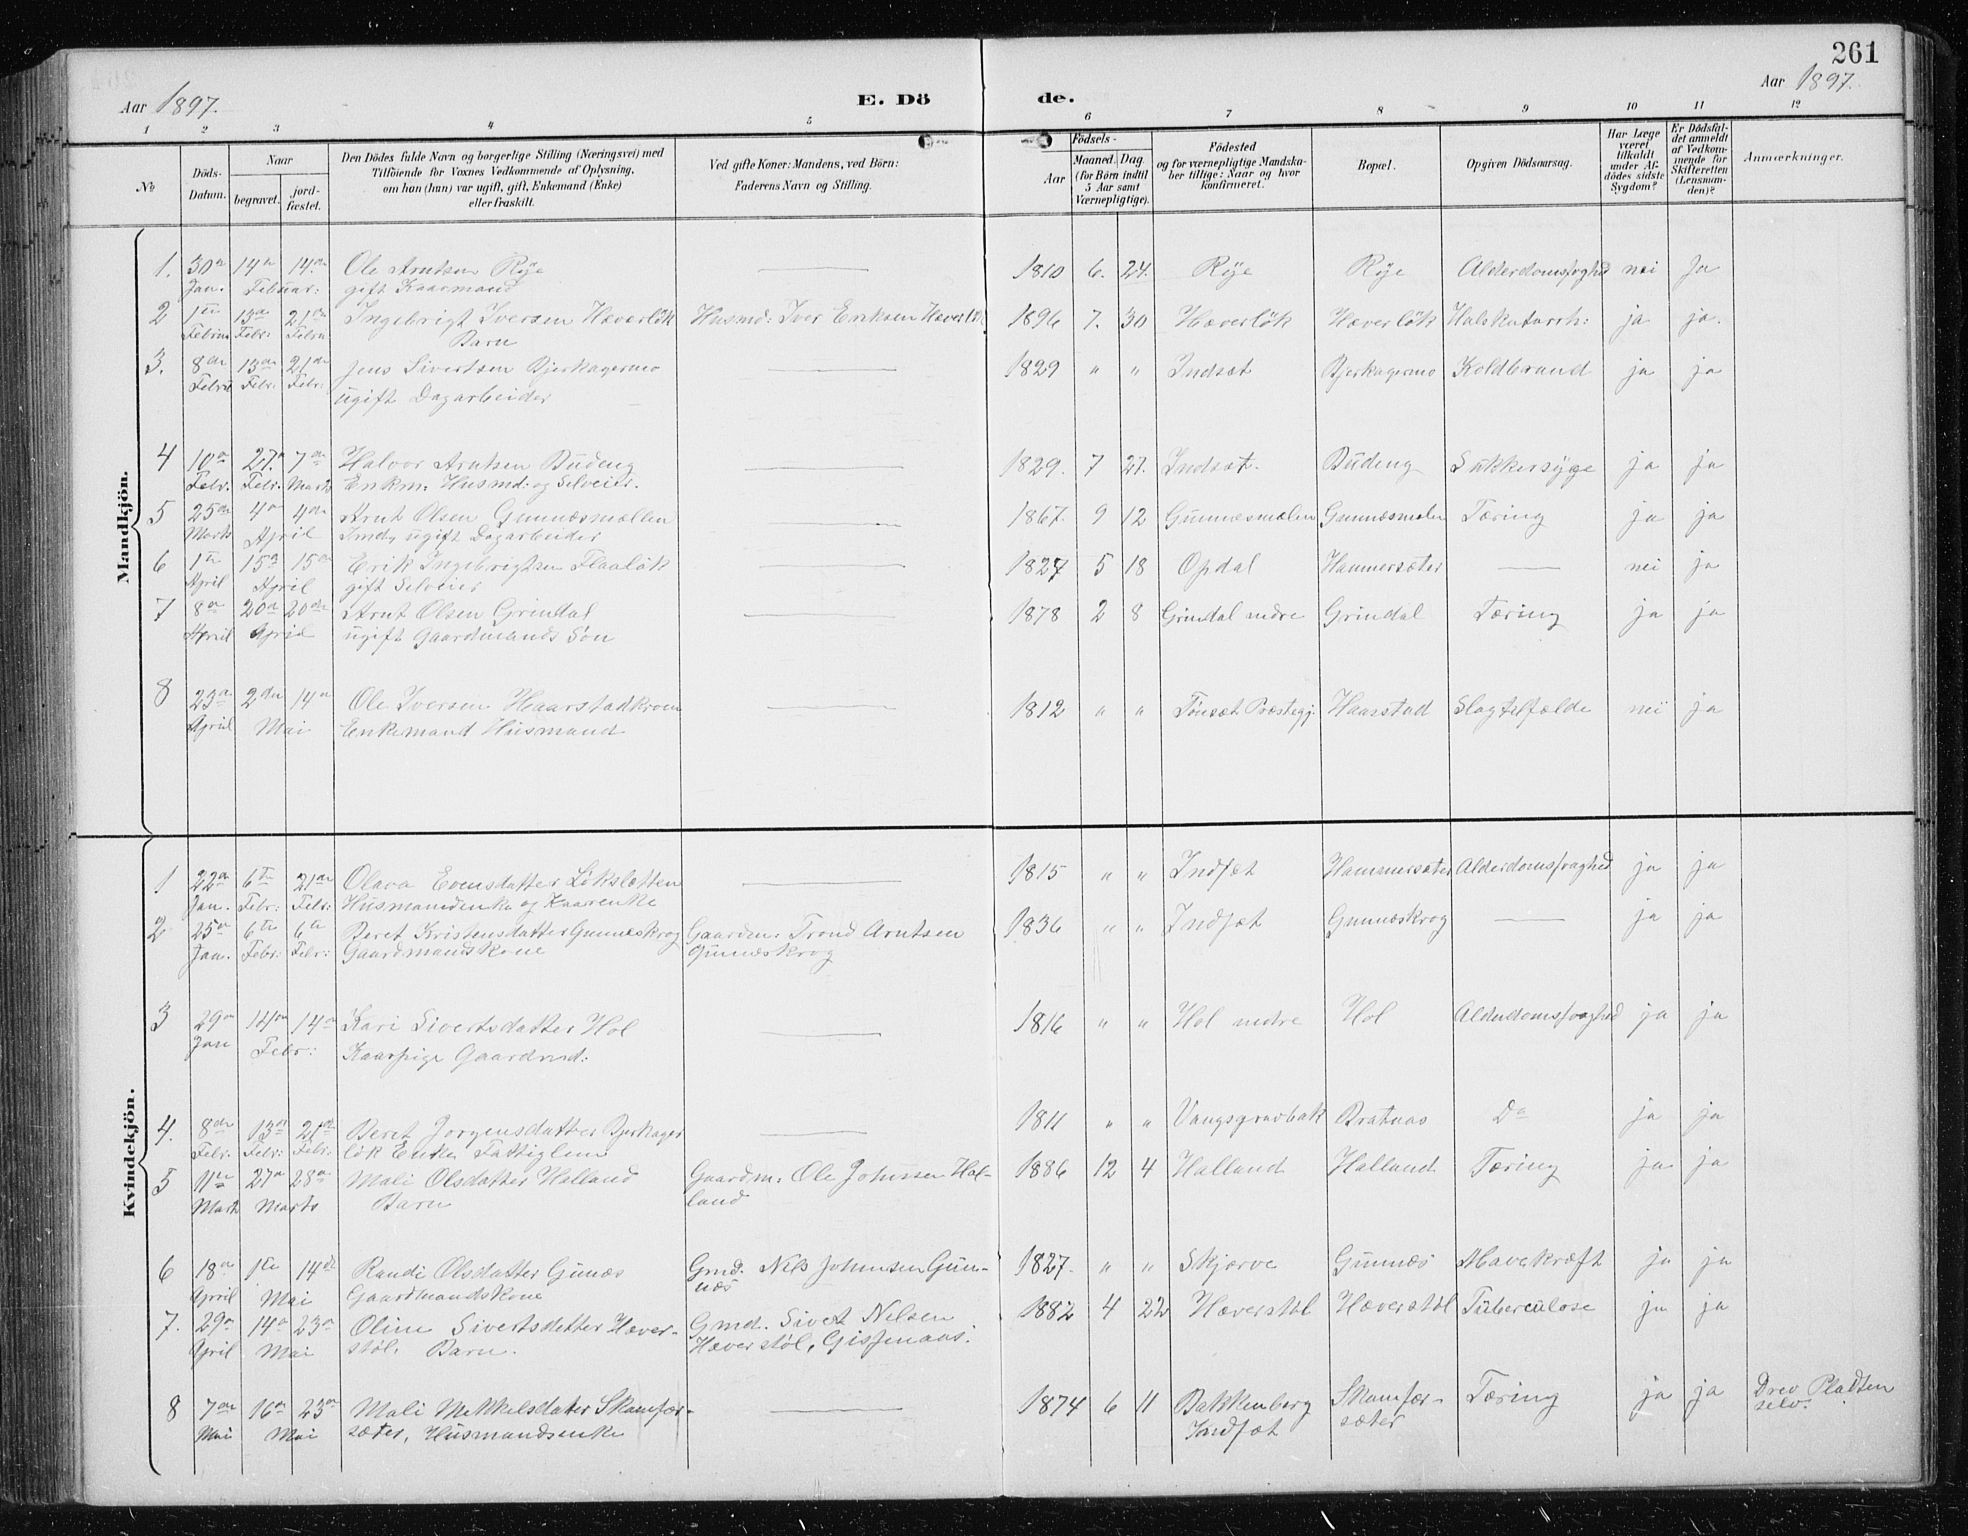 261
Aar 1897. E. Dö de. Aar 1897.
1 2 3 4 5 6 7 8 9 10 11 12
No
Döds-Datum.
Naar
begravet. jordfæstet.
Den Dödes fulde Navn og borgerlige Stilling (Næringsvei) med
Tilföiende för Voxnes Vedkommende af Oplysning,
om han (hun) var ugift, gift, Enkemand (Enke)
eller fraskilt.
Ved gifte Koner: Mandens, ved Börn:
Faderens Navn og Stilling.
Födsels-
Aar
Maaned. Dag.
(for Börn indtil
5 Aar samt
Værnepligtige).
Födested
og for værnepligtige Mandska-
ber tillige: Naar og hvor
konfirmeret.
Bopæl.
Opgiven Dödsaarsag.
Har Læge
været
tilkaldt
under Af-
dödes sidste
Sygdom?
Er Dödsfal-
det anmeldt
af Vedkom-
mende for
Skifteretten
(Lensman-
den)?
Anmærkninger.
Mandkjön.
1. 30te 14de 14de Ole Arntsen Röe 1810 6. 24. Röe Röe Alderdomssvaghed nei Ja
Jan. Februar: gift Kaarmand
2 1ste 13de 21de Ingebrigt Iversen Hæverlök Husmd: Iver Eriksen Hæverlök 1896 7. 30 Hæverlök Hæverlök Halskatarrh: ja ja.
Febr: Febr. Barn
3. 8de 13de 21de Jens Sivertsen Bjerkagermo 1829 " " Indset Bjerkagermo Koldbrand ja ja
Febr: Febr: ugift Dagarbeider
4 10de 27. 7de Halvor Arntsen Budeng 1829. 7 27. Indset. Budeng Sukkersyge ja ja
Febr. Febr. Marts Enkm. Husmd: og Selveier.
5 25de 4de 4de Arnt Olsen Gunnesmælen 1867. 9 12 Gunnesmælen Gunnesmælen Tæring ja ja
Marts April Inds, ugift Dagarbeider
6 1ste 15de 15de Erik Ingebrigtsen Flaalök 1827 5 18 Opdal Hammersæter nei ja
April April gift Selveier
7 8de 20de 20de Arnt Olsen Grindal 1878 2 8 Grindal nedre Grindal Tæring ja ja
April April ugift Gaardmands Sön
8 23de 2den 14de Ole Iversen Haarstadkroen 1812 " " Tönset Præstegj. Haarstad Slagtilfælde nei ja
April Mai Enkemand Husmand
Kvindekjön.
1 22de 6te 21de Olava Evensdatter Lökslætten 1815 " " Indset Hammersæter Alderdomssvaghed ja ja
Jan. Febr: Febr: Husmandenke og Kaarenke
2 25de 6te 6te Beret Kristensdatter Gunneskrog Gaardm: Trond Arntsen 1836 " " Indset Gunneskrog ja ja
Jan. Febr: Febr: Gaardmandskone Gunneskrog
3 29de 14de 14de Kari Sivertsdatter Hol 1816 " " Hol nedre Hol Alderdomssvaghed ja ja
Jan Febr: Kaarpige Gaardmd:
4. 8de 13de 21de Beret Jorgensdatter Bjerkager 1811 " " Vangsgravbak Bratnas Do ja ja
Febr. Febr: Febr. lök Enke, Fattiglem
5 11te 27de 28de Mali Olsdatter Halland Gaardm: Ole Johnsen Hal- 1886 12 4 Halland Halland Tæring ja ja
Marts Marts Barn land
6 18de 1ste 14de Randi Olsdatter Gunæs Gmd. Nils Johnsen Gun- 1827. " " Skjærve Gunnæs Mavekræft ja ja
April Mai Gaardmandskone næs
7. 29de 14de 23de Oline Sivertsdatter Hæver- Gmd. Sivert Nilsen 1882 4 22 Hæverstöl Hæverstöl Tuberculose ja ja
April Mai stöl. Barn. Hæverstöl, Gissenaas.
8 7de 16de 23de Mali Mikkelsdatter Skamfær- 1874 6 11 Bakkenberg Skamfær- Tæring ja ja Drev Pladsen
Mai Mai sæter, Husmandsenke Indset sæter selv.